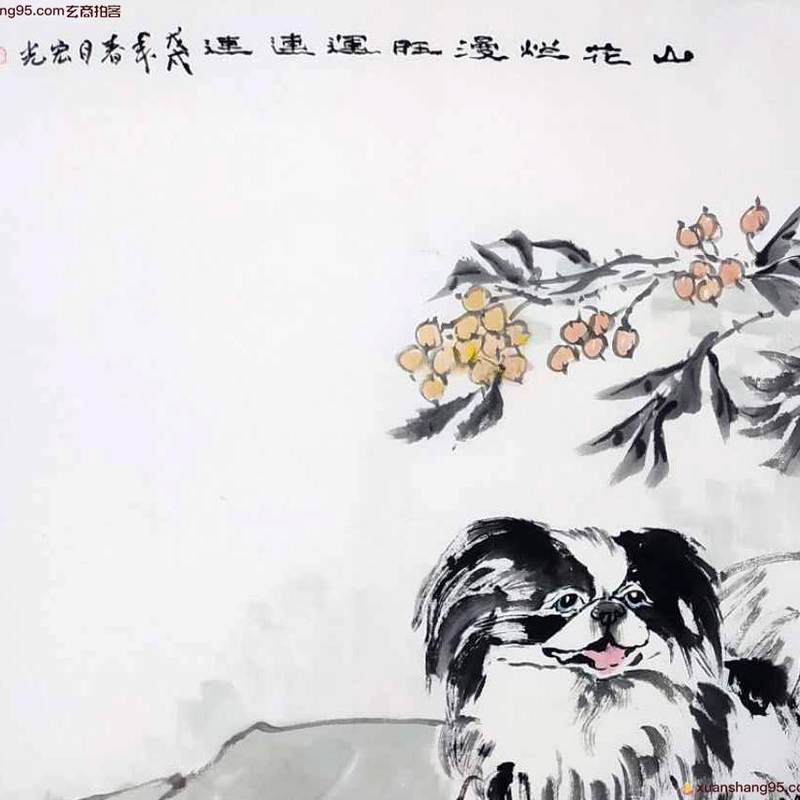 ng95.com玄商拍客
山花烂漫旺運連連戊戌年春月宏光
xuanshang95.c